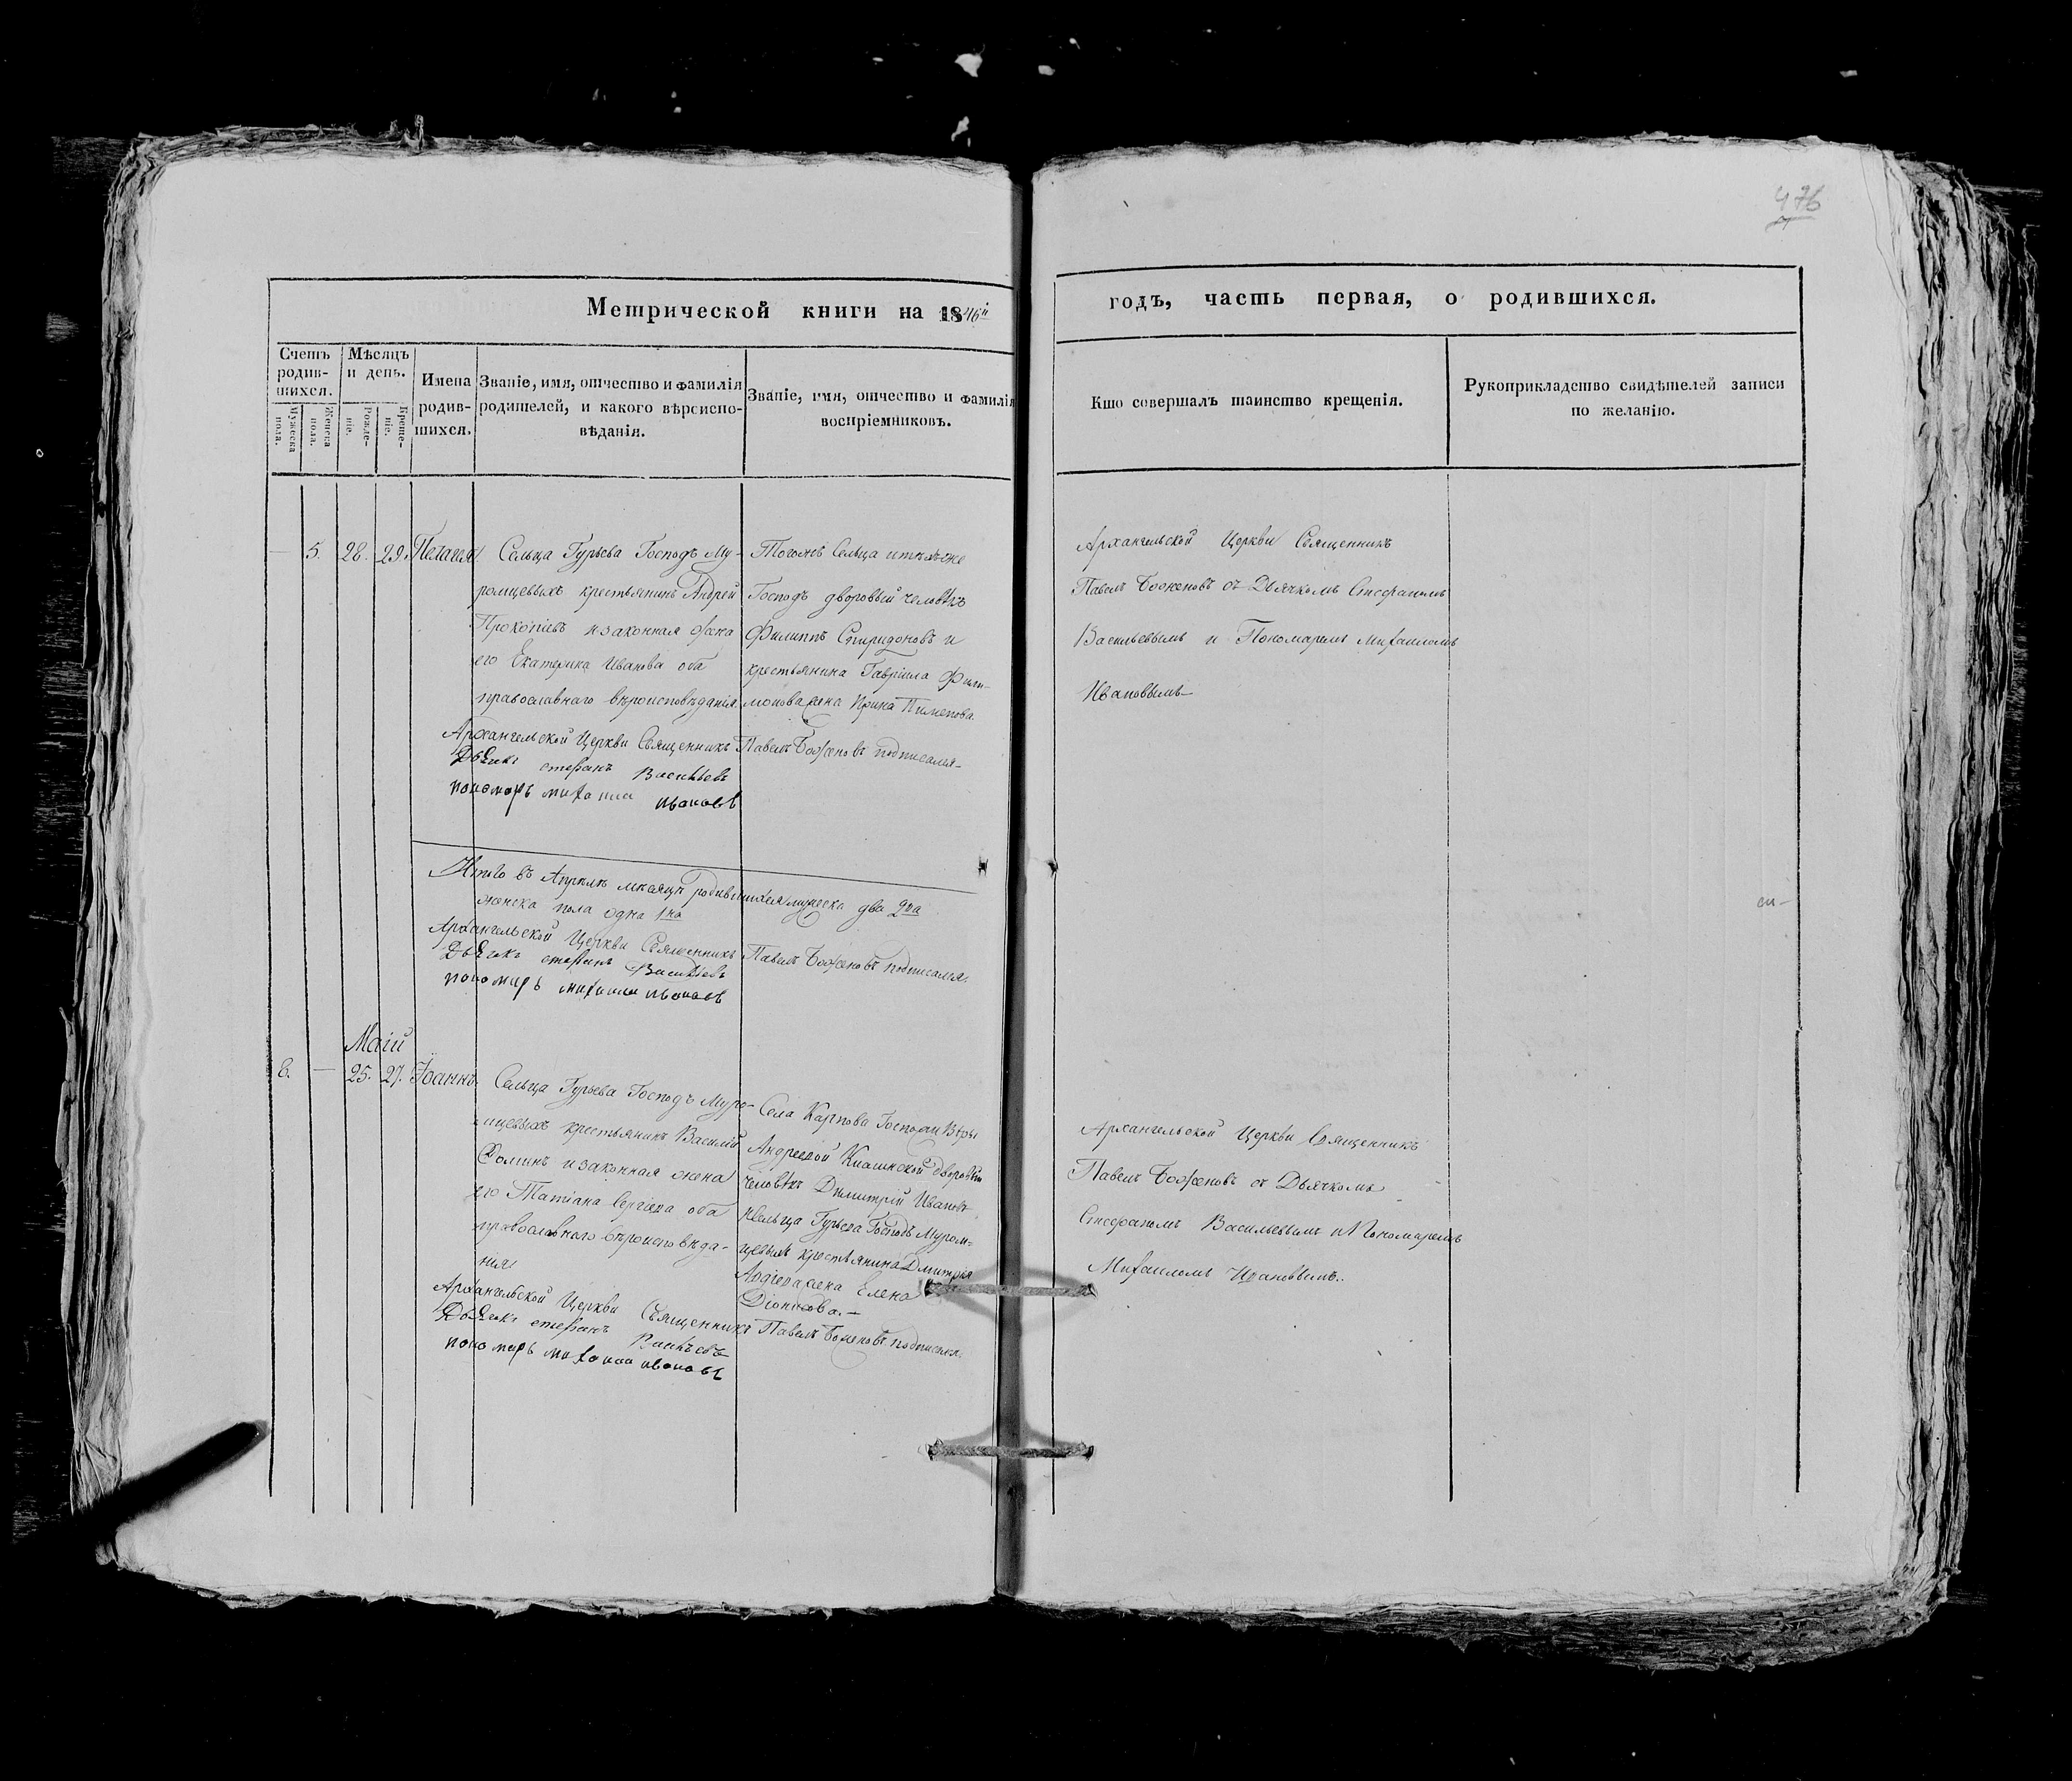 476
Метрической книги на 1846й
годъ, часть первая, о родившихся.
Счетъ родив-шихся.
Мужеска пола.
Женска пола.
Мѣсяцъ и день.
Рожде-ніе.
Креще-ніе.
Имена родив-шихся.
Званіе, имя, отчество и фамилія
родителей, и какого вѣроиспо-
вѣданія.
Званіе, имя, отчество и фамилія
воспріемниковъ.
Кто совершалъ таинство крещенія.
Рукоприкладство свидѣтелей записи
по желанію.
— 5. 28. 29. Пелагія
Сельца Гурьева Господъ Му-
ромцевыхъ крестьянинъ Андрей
Прокопіевъ и законная жена
его Екатерина Иванова оба
православнаго вѣроисповѣданія.
Тогожъ Сельца и тѣхъже
Господъ дворовый человѣкъ
Филиппъ Спиридоновъ и
крестьянина Гавріила Фили-
монова жена Ирина Пименова.
Архангельской Церкви Священникъ
Павелъ Боженовъ съ Дьячкомъ Стефаномъ
Васильевымъ и Пономаремъ Михаиломъ
Ивановымъ
Архангельской Церкви Священникъ Павелъ Боженовъ подписался
Дьячекъ стефанъ Васильевъ
пономарь михаилъ ивановъ
Итого въ Апрѣлѣ мѣсяцѣ родившихся мужеска два 2ва
женска пола одна 1на
Архангельской Церкви Священникъ Павелъ Боженовъ подписался.
Дьячекъ стефанъ Васильевъ
пономарь михаилъ ивановъ
Маій
6. — 25. 27. Іоаннъ.
Сельца Гурьева Господъ Муро-
мцевыхъ крестьянинъ Василій
Фоминъ и законная жена
его Татіана Сергіева оба
православного вѣроисповѣда-
нія
Села Карпова Госпожи Вѣры
Андреевой дворовый
человѣкъ Димитрій Ивановъ
и сельца Гурьева Господъ Муром-
цевыхъ крестьянина Дмитрія
жена Елена
Діонисова.—
Архангельской Церкви Священникъ
Павелъ Боженовъ съ Дьячкомъ
Стефаномъ Васильевымъ и Пономаремъ
Михаиломъ Ивановымъ.
Архангельской Церкви Священникъ Павелъ Боженовъ подписался.
Дьячекъ стефанъ Васильевъ
пономарь михаилъ ивановъ